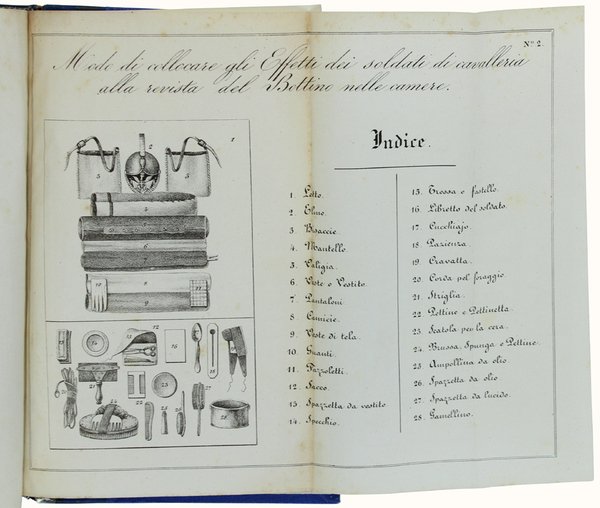 Nº 2.
Modo di collocare gli Effetti dei soldati di cavalleria
alla revista del Bottino nelle camere.
Indice.
1. Letto.
2. Elmo.
3. Bisaccie.
4. Mantello.
5. Valigia.
6. Veste e Vestito.
7. Pantaloni
8. Camicie.
9. Veste di tela.
10. Guanti.
11. Fazzoletti.
12. Sacco.
13. Spazzetta da vestito
14. Specchio.
15. Trossa e fastello.
16. Libretto del soldato.
17. Cucchiajo.
18. Pazienza.
19. Cravatta.
20. Corda pel foraggio.
21. Striglia.
22. Pettine e Pettinetta.
23. Scatola per la cera.
24. Brussa, Spunga e Pettine.
25. Ampollina da olio.
26. Spazzetta da olio
27. Spazzetta da lucido.
28. Gamellino.